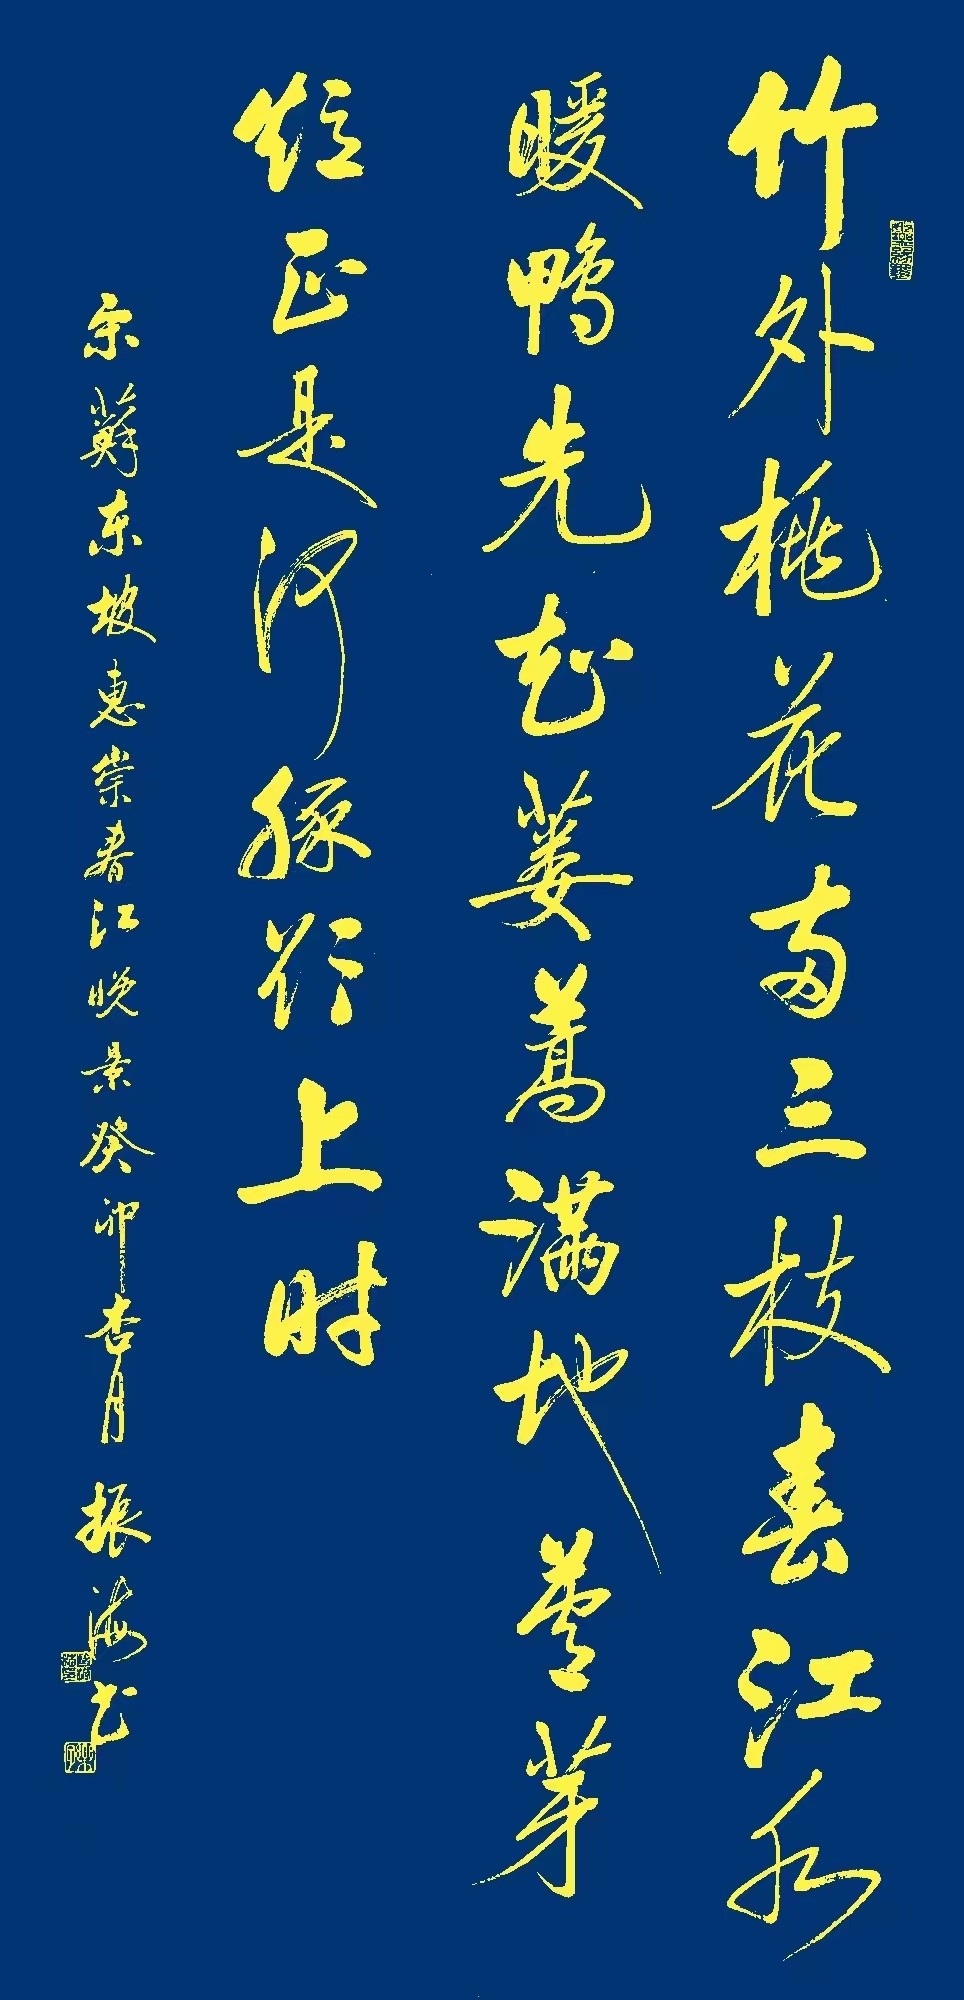 竹外桃花两三枝春江水
暖鸭先知蒌蒿满地芦芽
短正是河豚欲上时
宋蘇东坡惠崇春江晚景癸卯杏月 振海书